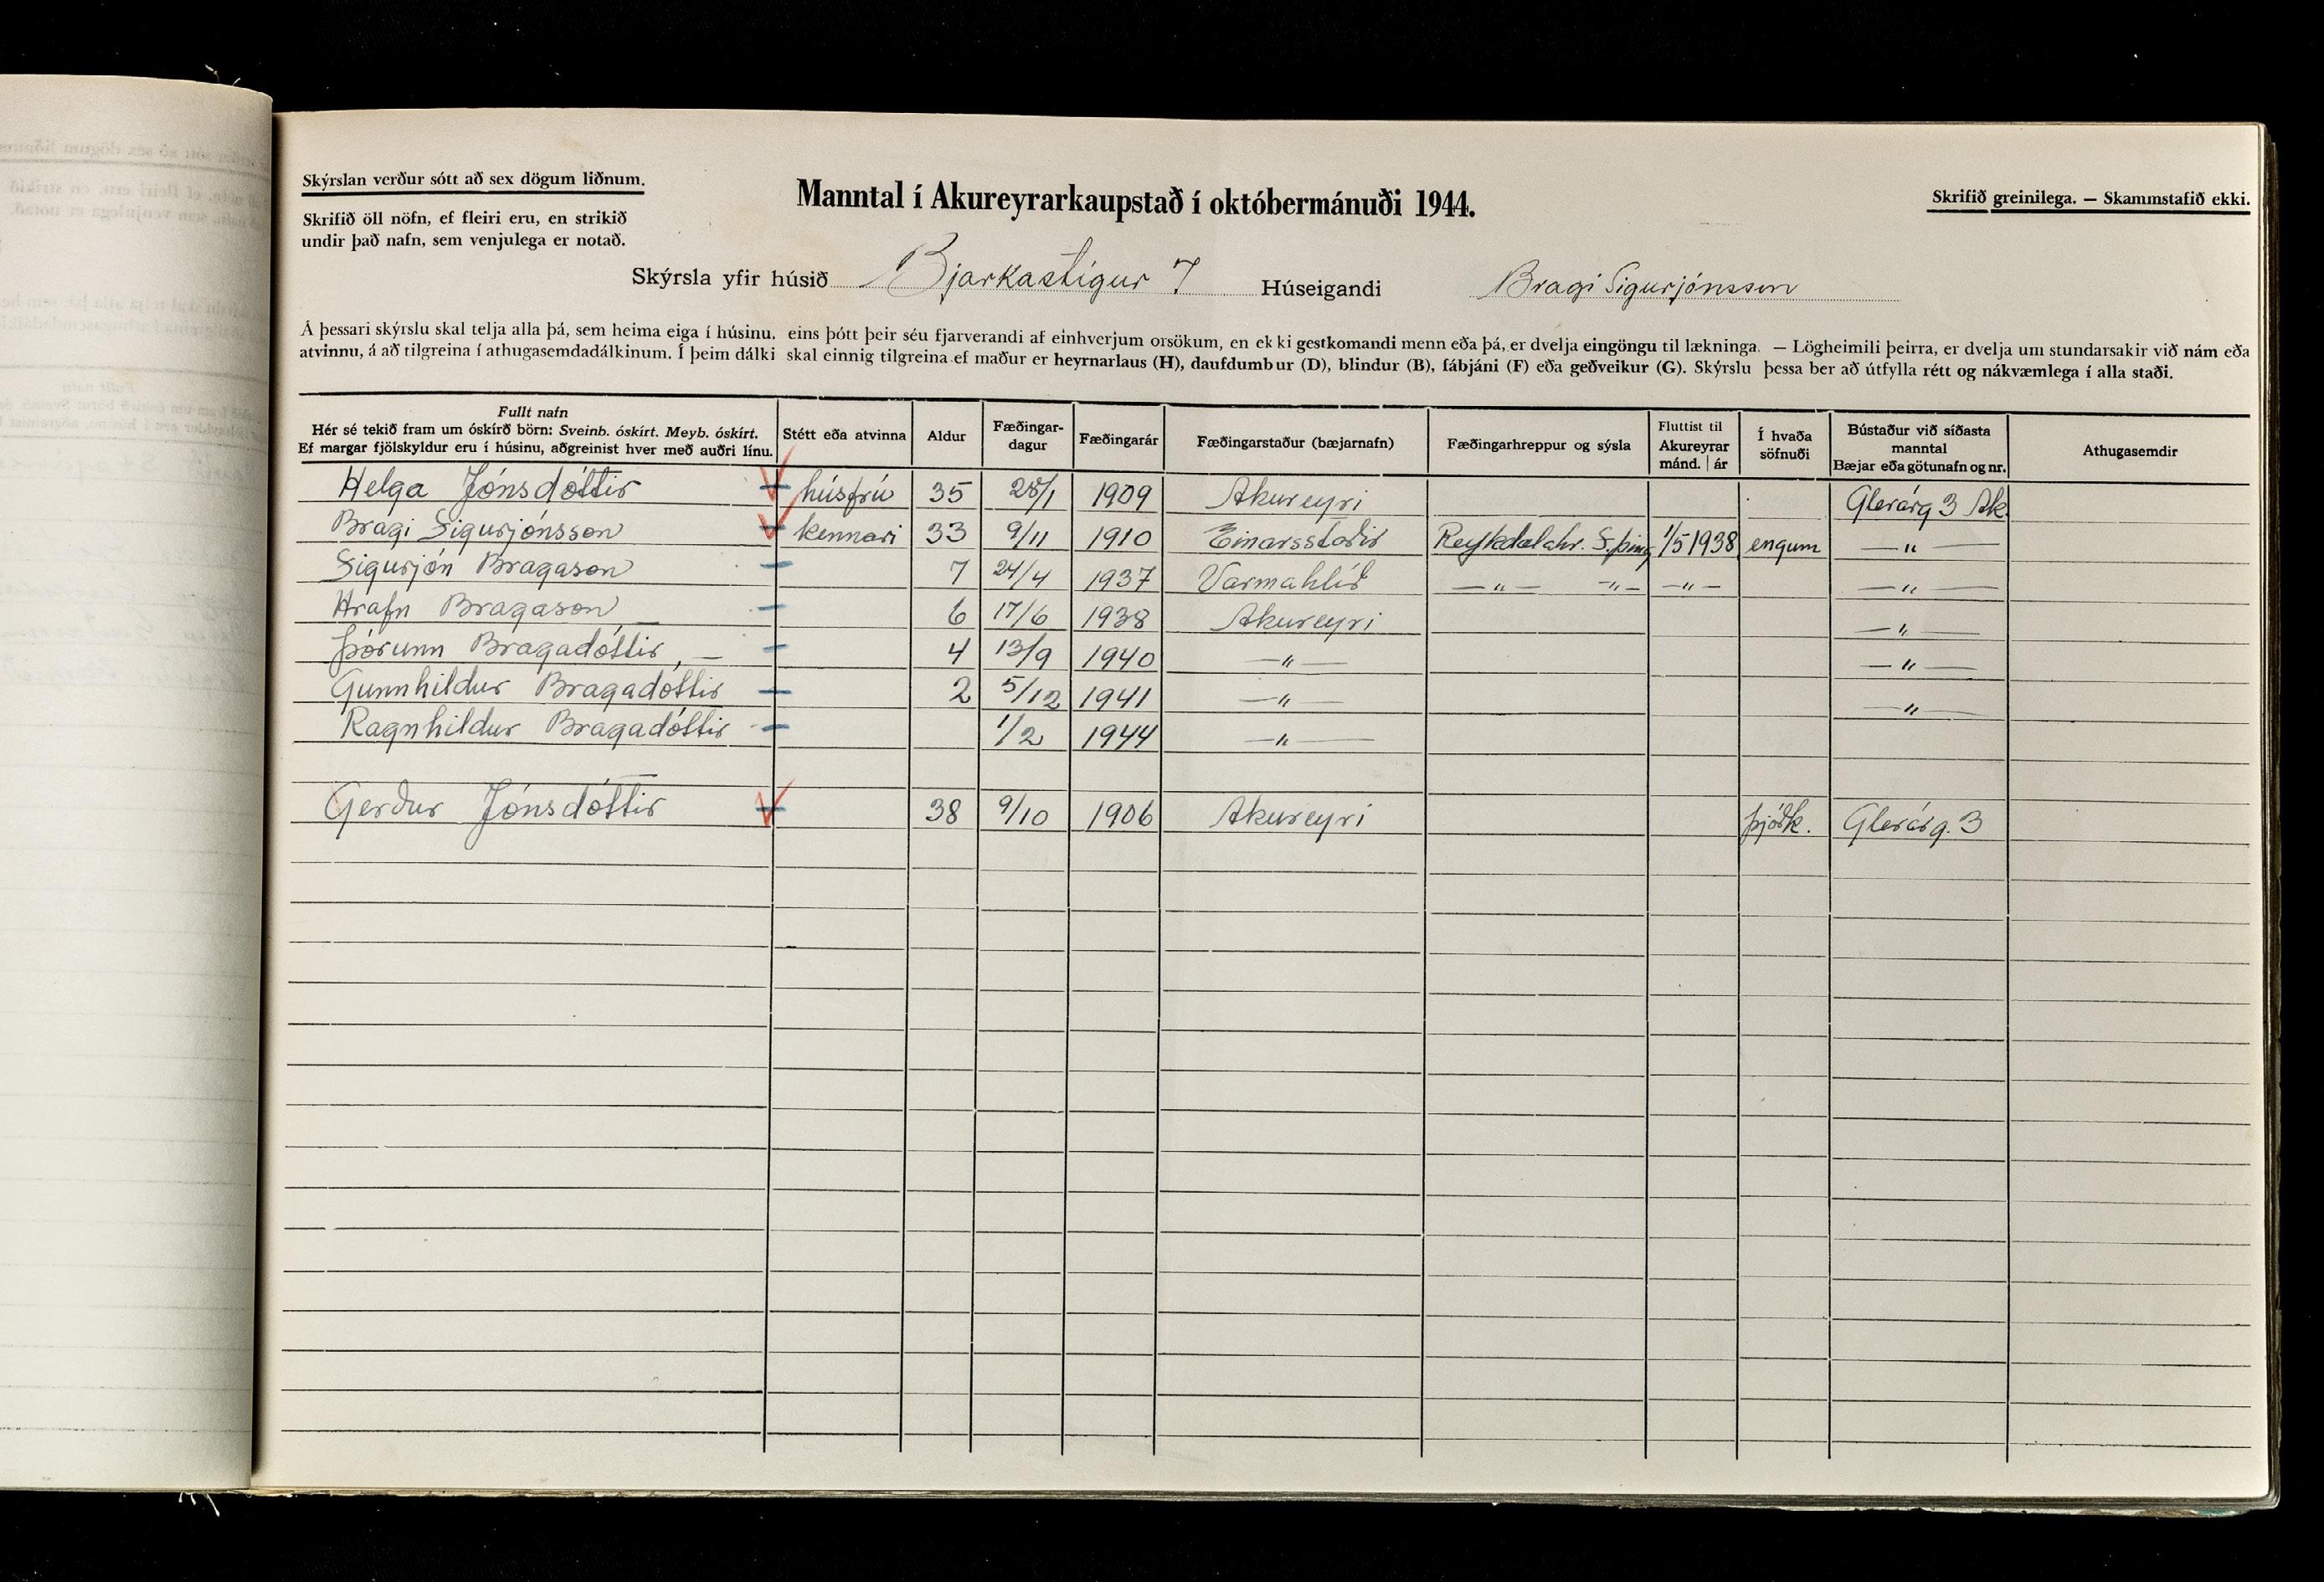 Skýrslan verður sótt að sex dögum liðnum.
Manntal í Akureyrarkaupstað í októbermánuði 1944.
Skrifið greinilega. — Skammstafið ekki.
Skrifið öll nöfn, ef fleiri eru, en strikið
undir það nafn, sem venjulega er notað.
Skýrsla yfir húsið Bjarkastígur 7 Húseigandi Bragi Sigurjónsson
Á þessari skýrslu skal telja alla þá, sem heima eiga í húsinu, eins þótt þeir séu fjarverandi af einhverjum orsökum, en ekki gestkomandi menn eða þá, er dvelja eingöngu til lækninga. — Lögheimili þeirra, er dvelja um stundarsakir við nám eða
atvinnu, á að tilgreina í athugasemdadálkinum. Í þeim dálki skal einnig tilgreina ef maður er heyrnarlaus (H), daufdumbur (D), blindur (B), fábjáni (F) eða geðveikur (G). Skýrslu þessa ber að útfylla rétt og nákvæmlega í alla staði.
Fullt nafn
Hér sé tekið fram um óskírð börn: Sveinb. óskírt. Meyb. óskírt.
Ef margar fjölskyldur eru í húsinu, aðgreinist hver með auðri línu.
Stétt eða atvinna
Aldur
Fæðingar-
dagur
Fæðingarár
Fæðingarstaður (bæjarnafn)
Fæðingarhreppur og sýsla
Fluttist til
Akureyrar
mánd. | ár
Í hvaða
söfnuði
Bústaður við síðasta
manntal
Bæjar eða götunafn og nr.
Athugasemdir
Helga Jónsdóttir húsfrú 35 28/1 1909 Akureyri Glerárg 3 Ak.
Bragi Sigurjónsson kennari 33 9/11 1910 Einarsstaðir Reykdælahr. S.þing 1/5 1938 engum — " —
Sigurjón Bragason 7 24/4 1937 Varmahlíð — " — — " — — " — — " —
Hrafn Bragason 6 17/6 1938 Akureyri — " —
Þórunn Bragadóttir, — 4 13/9 1940 — " — — " —
Gunnhildur Bragadóttir 2 5/12 1941 — " — — " —
Ragnhildur Bragadóttir 1/2 1944 — " —
Gerður Jónsdóttir 38 9/10 1906 Akureyri þjóðk. Glerárg. 3